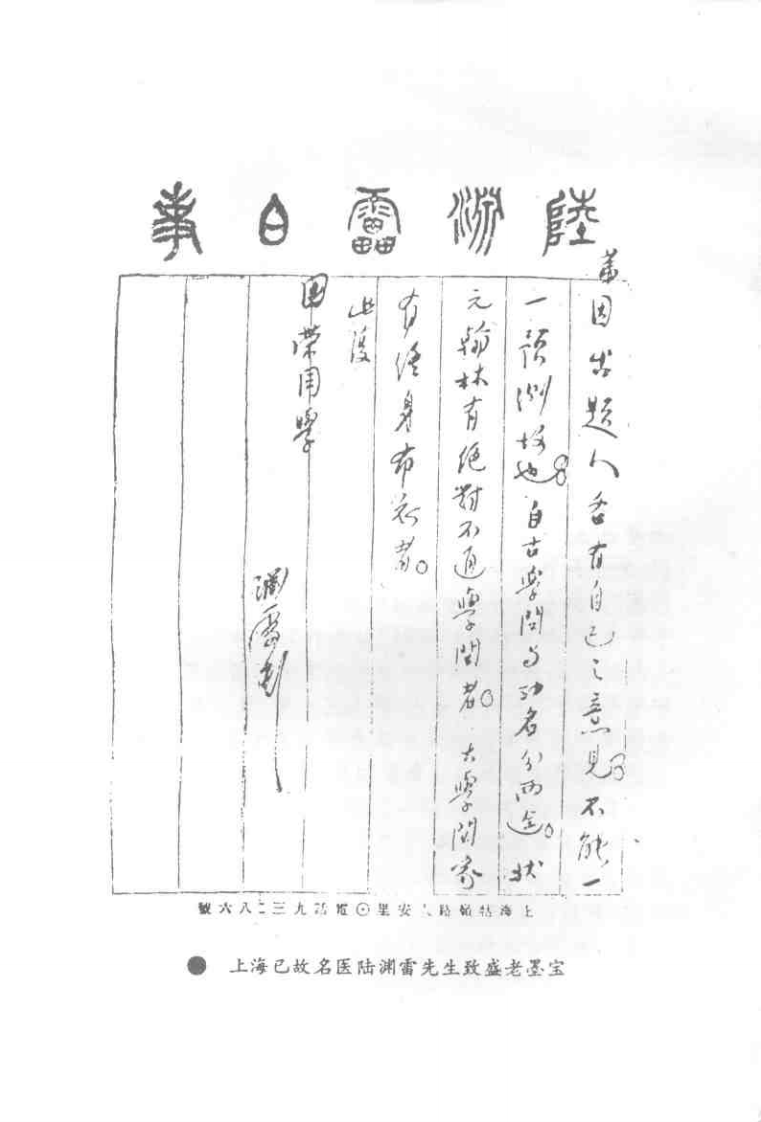 陸淵雷白事
蓋因出題人各有自己之意見不能一
一預測故也自古學問与功名分兩途。狀
元翰林有絕對不通學問者。大學問家
有終身布衣者。
此復
國榮同學
淵雷
上海牯嶺路人安里⊙電話九三二八六號
● 上海已故名医陆渊雷先生致盛老墨宝